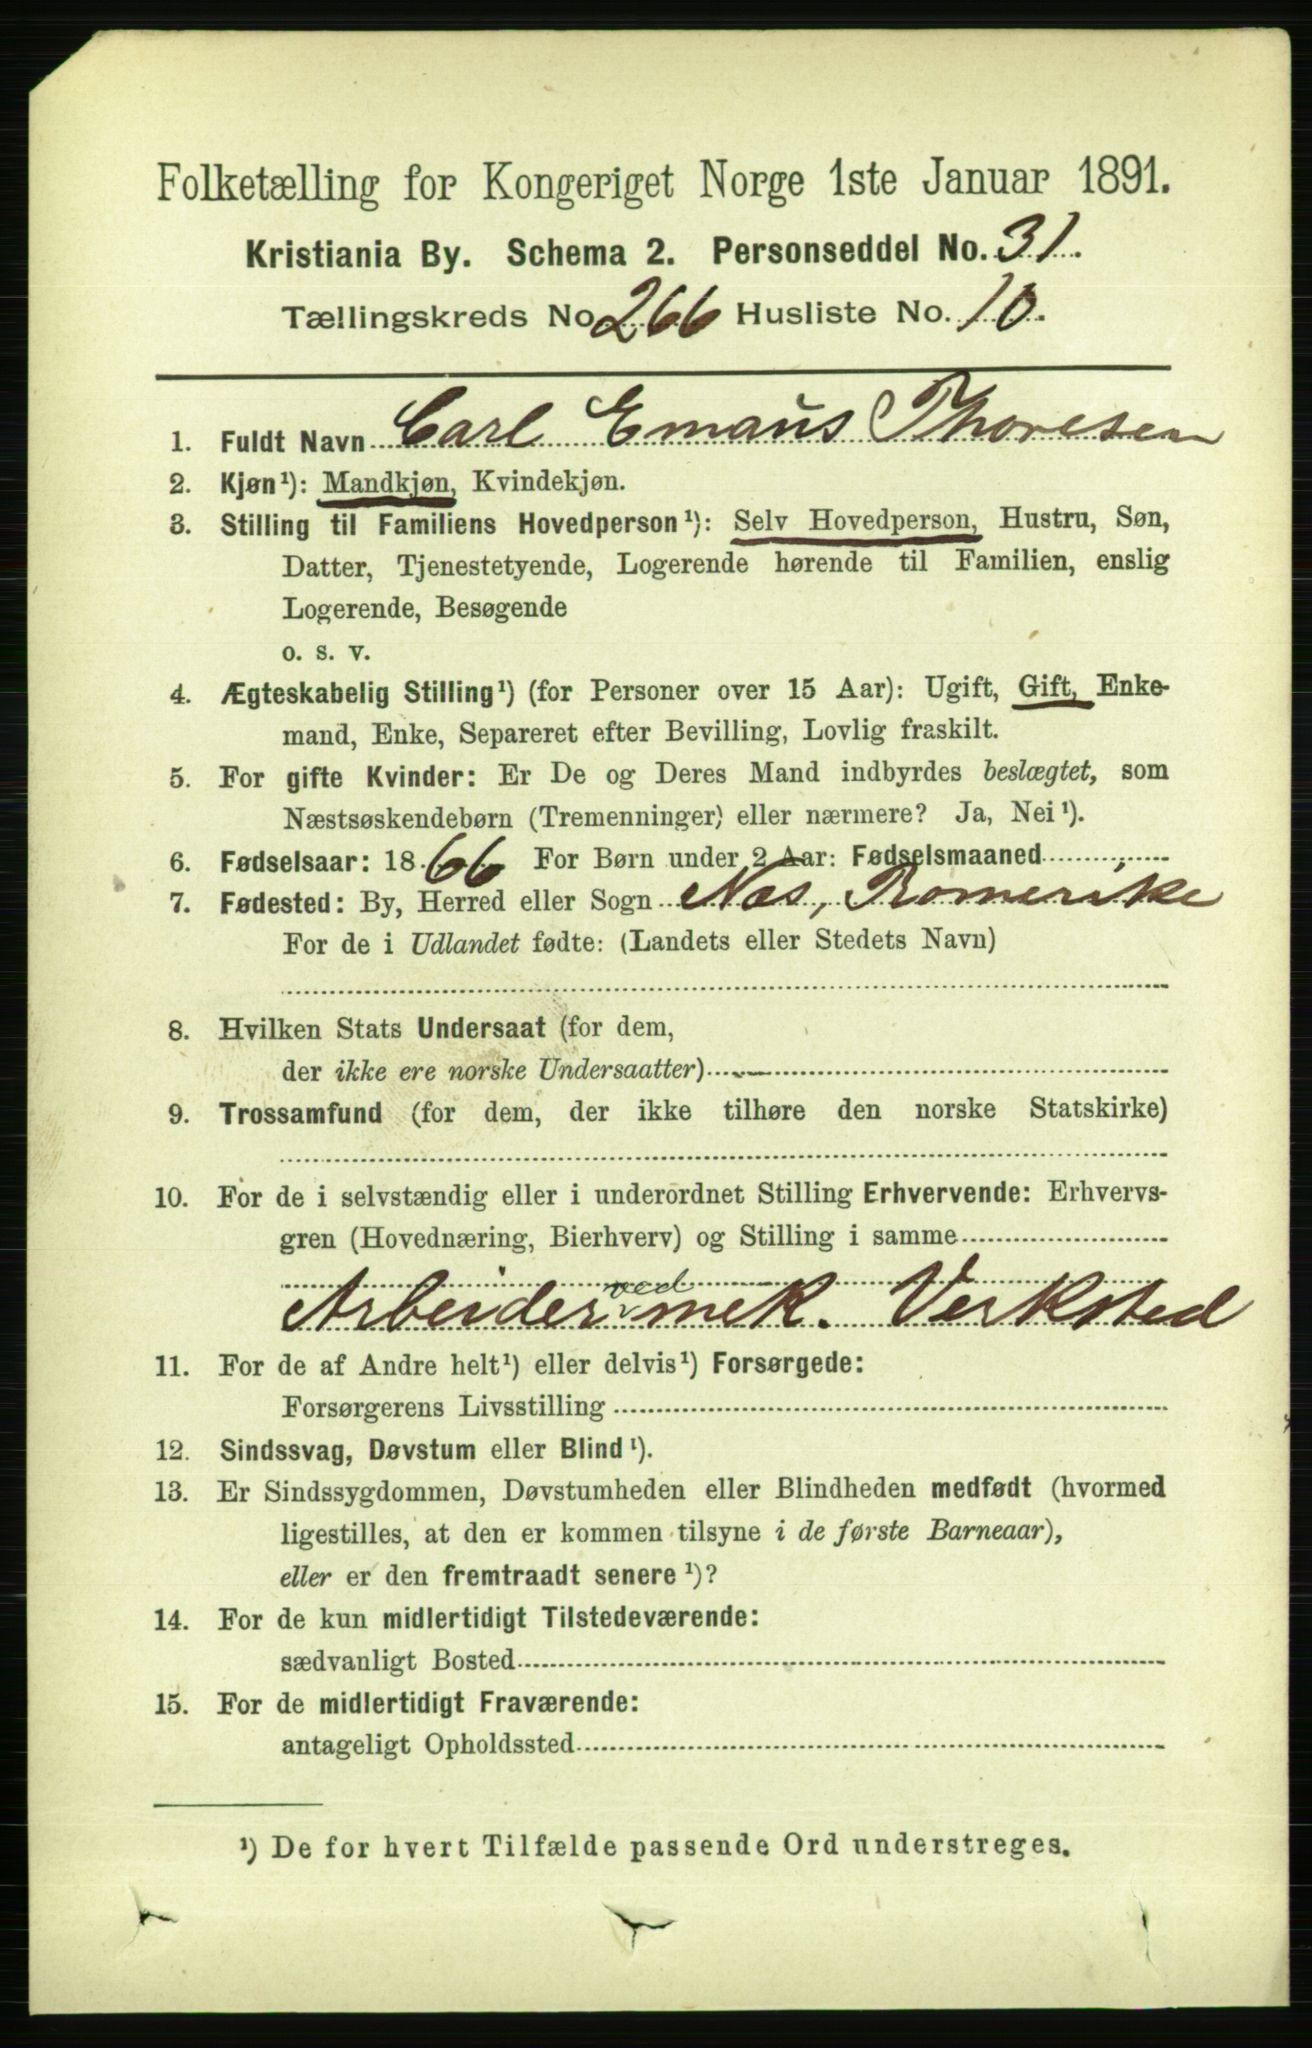 Folketælling for Kongeriget Norge 1ste Januar 1891.
Kristiania By. Schema 2. Personseddel No. 31.
Tællingskreds No 266 Husliste No. 10.
1. Fuldt Navn Carl Emaus Thoresen
2. Kjøn¹): Mandkjøn, Kvindekjøn.
3. Stilling til Familiens Hovedperson¹): Selv Hovedperson, Hustru, Søn,
Datter, Tjenestetyende, Logerende hørende til Familien, enslig
Logerende, Besøgende
o. s. v.
4. Ægteskabelig Stilling¹) (for Personer over 15 Aar): Ugift, Gift, Enke-
mand, Enke, Separeret efter Bevilling, Lovlig fraskilt.
5. For gifte Kvinder: Er De og Deres Mand indbyrdes beslægtet, som
Næstsøskendebørn (Tremenninger) eller nærmere? Ja, Nei¹).
6. Fødselsaar: 1866 For Børn under 2 Aar: Fødselsmaaned
7. Fødested: By, Herred eller Sogn Næs, Romerike
For de i Udlandet fødte: (Landets eller Stedets Navn)
8. Hvilken Stats Undersaat (for dem,
der ikke ere norske Undersaatter)
9. Trossamfund (for dem, der ikke tilhøre den norske Statskirke)
10. For de i selvstændig eller i underordnet Stilling Erhvervende: Erhvervs-
gren (Hovednæring, Bierhverv) og Stilling i samme
Arbeider ved mek. Verksted
11. For de af Andre helt¹) eller delvis¹) Forsørgede:
Forsørgerens Livsstilling
12. Sindssvag, Døvstum eller Blind¹).
13. Er Sindssygdommen, Døvstumheden eller Blindheden medfødt (hvormed
ligestilles, at den er kommen tilsyne i de første Barneaar),
eller er den fremtraadt senere¹)?
14. For de kun midlertidigt Tilstedeværende:
sædvanligt Bosted
15. For de midlertidigt Fraværende:
antageligt Opholdssted
¹) De for hvert Tilfælde passende Ord understreges.